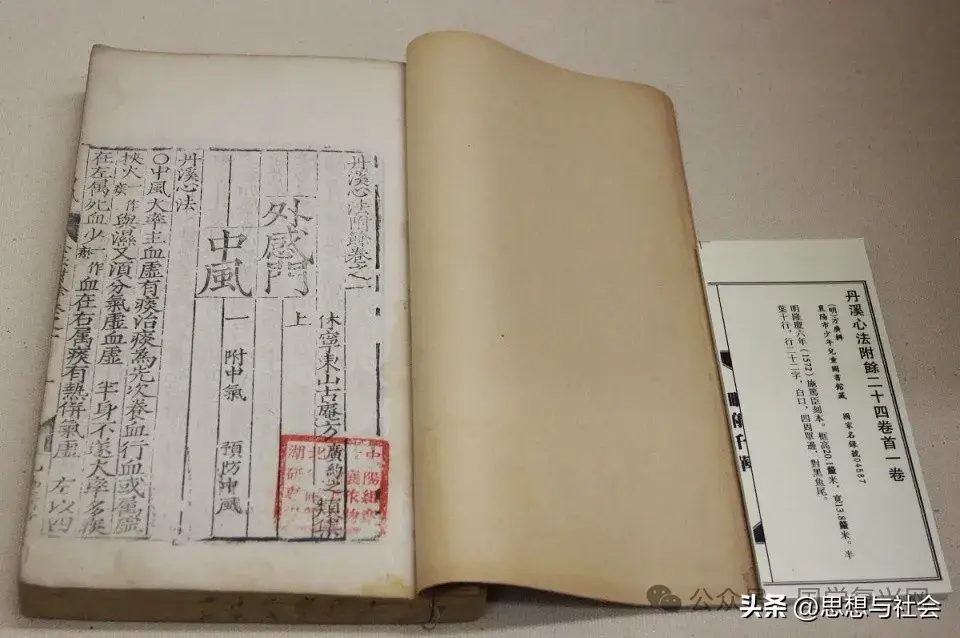 丹溪心法附餘卷之一
休寧東山古庵方廣約之類集
外感門 上
中風 一 附中氣 預防中風
丹溪心法
○中風大率主血虛有痰治痰為先次養血行血或屬虛
挾火一作痰與濕又須分氣虛血虛 半身不遂大率多痰
在左屬死血少一作瘀血在右屬痰有熱併氣虛 左以四
丹溪心法附餘二十四卷首一卷
(明)方廣輯
襄陽市少年兒童圖書館藏 國家名錄號04587
明隆慶六年(1572)施篤臣刻本。框高20.1釐米,寬13.8釐米。半
葉十行,行二十二字,白口,四周單邊,對黑魚尾。
头条 @思想与社会